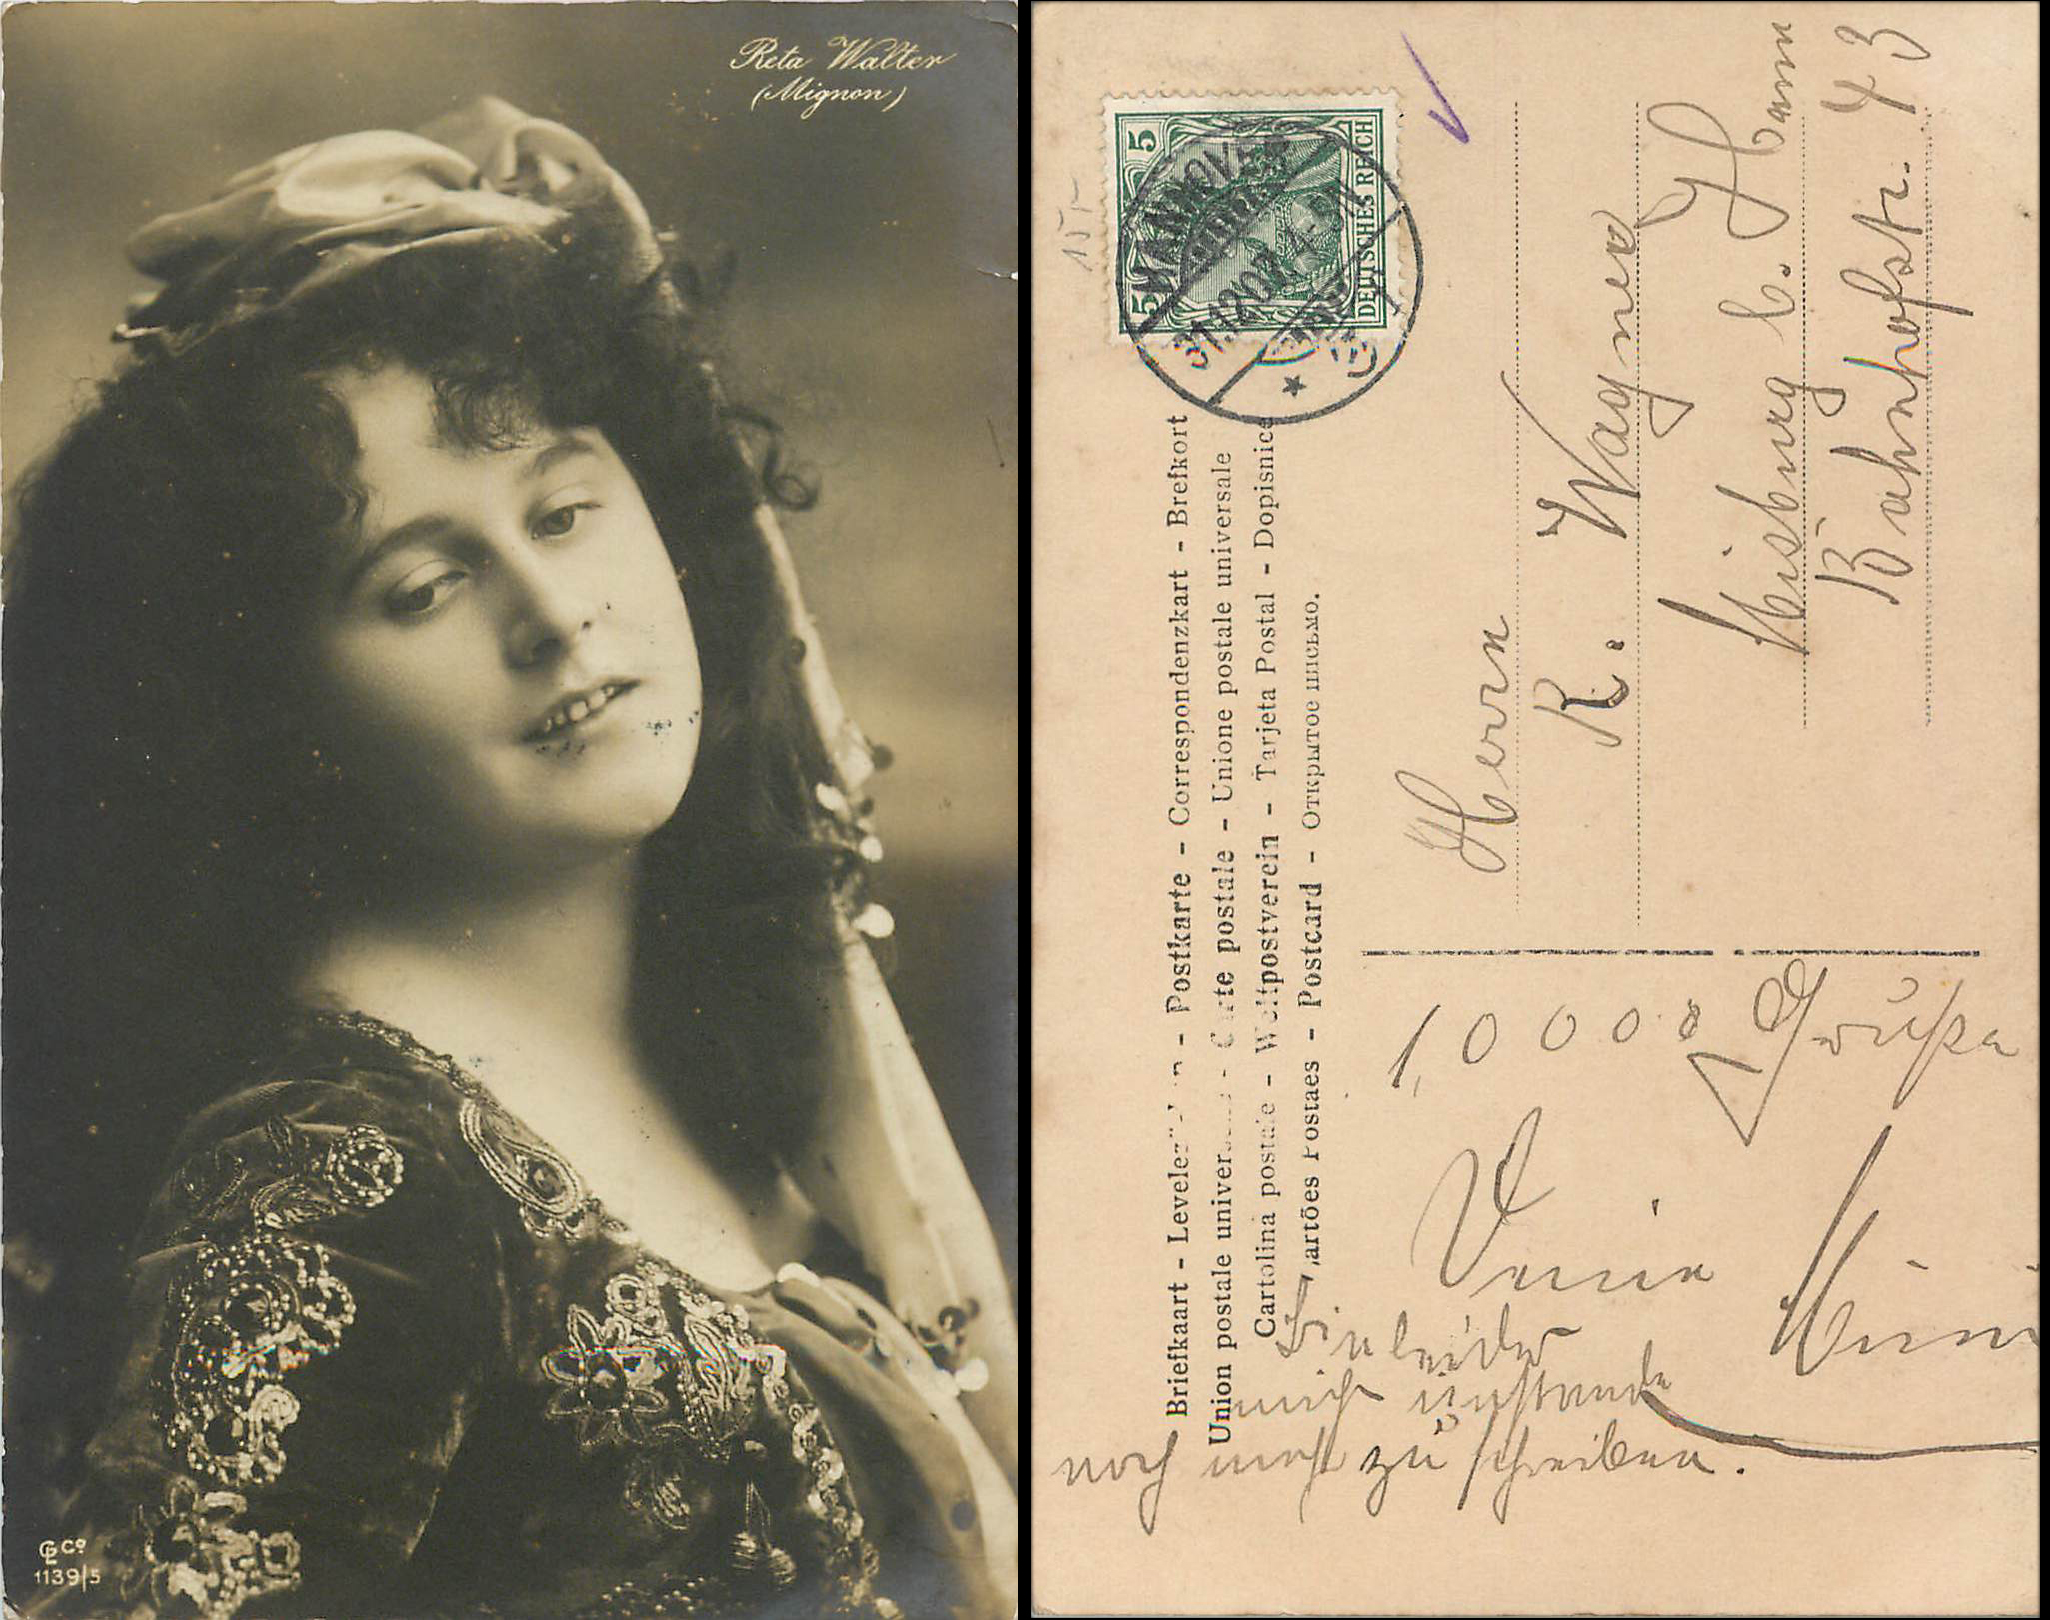 Reta Walter
(Mignon)
G L Co
1139/5
5 5
DEUTSCHES REICH
HANNOVER
31.12.08. 4-
Briefkaart - - Postkarte - Correspondenzkart - Brefkort
Union postale - Carte postale - Unione postale universale
Cartolina postale - Weltpostverein - Tarjeta Postal - Dopisnice
artões Postaes - Postcard - Открытое письмо.
Herrn
R. Wagner
Misburg b. Hann
Bahnhofstr. 43
1000 Grüße
Deine
Bin leider
noch nicht zu schreiben.